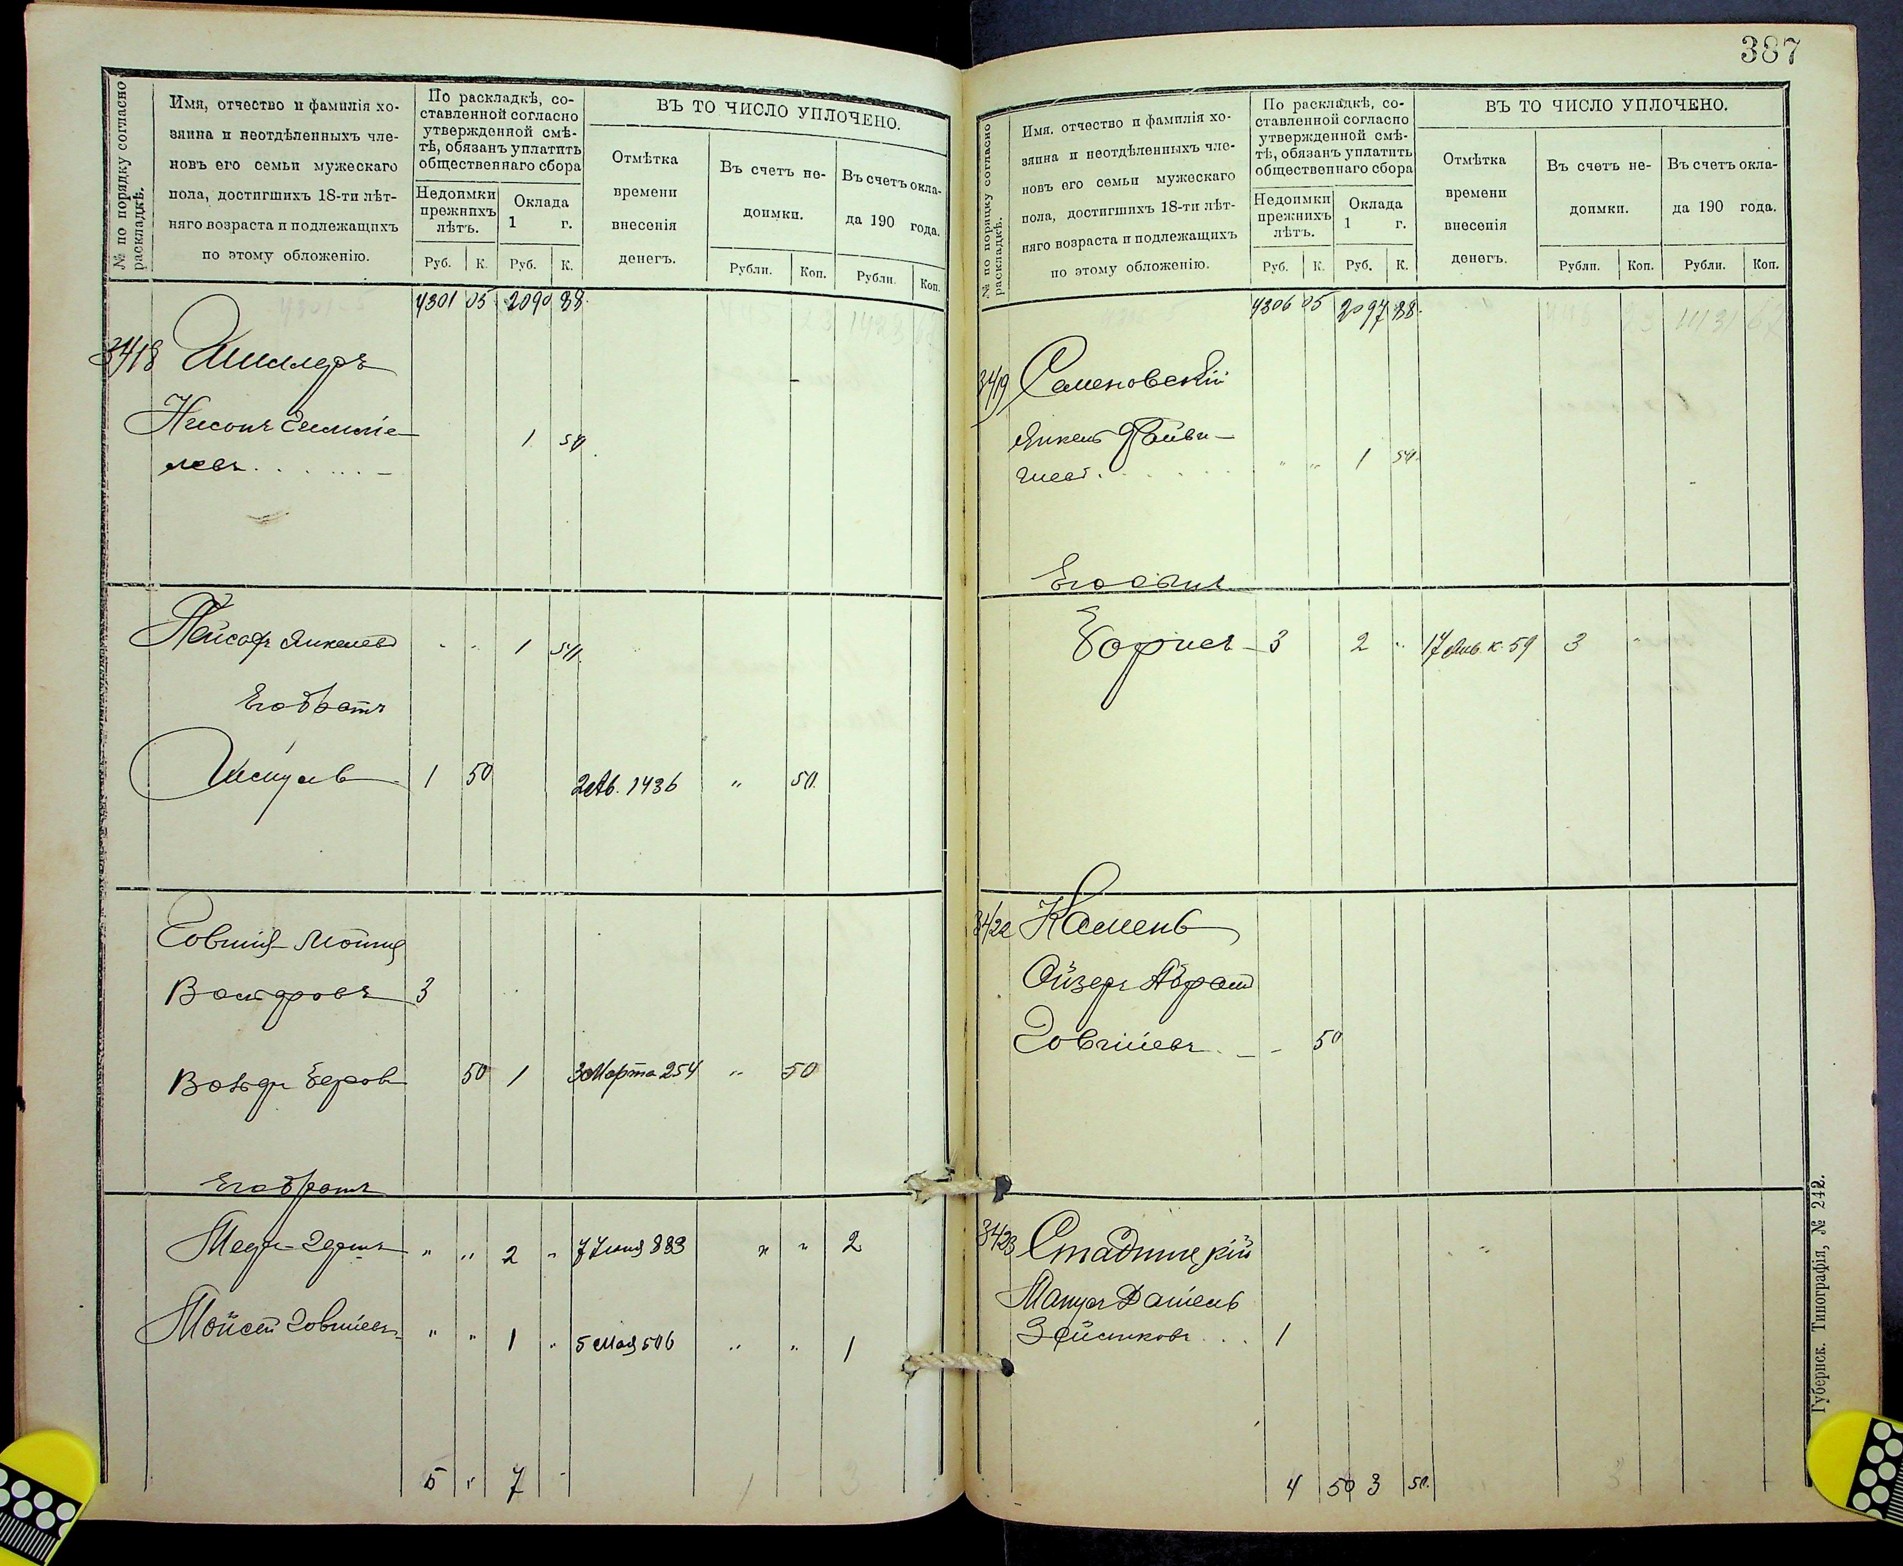 387
№ по порядку согласно раскладкѣ.
Имя, отчество и фамилія хо-
зяина и неотдѣленныхъ чле-
новъ его семьи мужескаго
пола, достигшихъ 18-ти лѣт-
няго возраста и подлежащихъ
по этому обложенію.
По раскладкѣ, со-
ставленной согласно
утвержденной смѣ-
тѣ, обязанъ уплатить
общественнаго сбора
Недоимки
прежнихъ
лѣтъ.
Оклада
1 г.
Руб. К. Руб. К.
ВЪ ТО ЧИСЛО УПЛОЧЕНО.
Отмѣтка
времени
внесенія
денегъ.
Въ счетъ не-
доимки.
Въ счетъ окла-
да 190 года.
Рубли. Коп. Рубли. Коп.
4301 05 2090 38
3418 Шиллеръ
Нисонъ
левъ 1 50
Пейсахъ Янкелевъ " " 1 50
Его братъ
1 50 2 Ав. 1436 " 50
Говшія Мошія
3
Вольфъ Беровъ 50 1 3 Марта 254 " 50
Его братъ
" " 2 " 7 Іюня 883 " " 2
Мойсей Говшіевъ " " 1 " 5 Мая 506 " " 1
5 " 7 "
№ по порядку согласно раскладкѣ.
Имя, отчество и фамилія хо-
зяина и неотдѣленныхъ чле-
новъ его семьи мужескаго
пола, достигшихъ 18-ти лѣт-
няго возраста и подлежащихъ
по этому обложенію.
По раскладкѣ, со-
ставленной согласно
утвержденной смѣ-
тѣ, обязанъ уплатить
общественнаго сбора
Недоимки
прежнихъ
лѣтъ.
Оклада
1 г.
Руб. К. Руб. К.
ВЪ ТО ЧИСЛО УПЛОЧЕНО.
Отмѣтка
времени
внесенія
денегъ.
Въ счетъ не-
доимки.
Въ счетъ окла-
да 190 года.
Рубли. Коп. Рубли. Коп.
4306 05 2097 38
3419 Семеновскій
Янкель Файви-
шев. " " 1 50
Его сынъ
Борисъ 3 2 " 17 Янв. к. 59 3 "
3422 Камень
Ойзеръ Абрам
Говшіевъ 50
3423 Стадницкій
Манусъ Даніель
Зейликовъ 1
4 50 3 50
Губернск. Типографія, № 242.